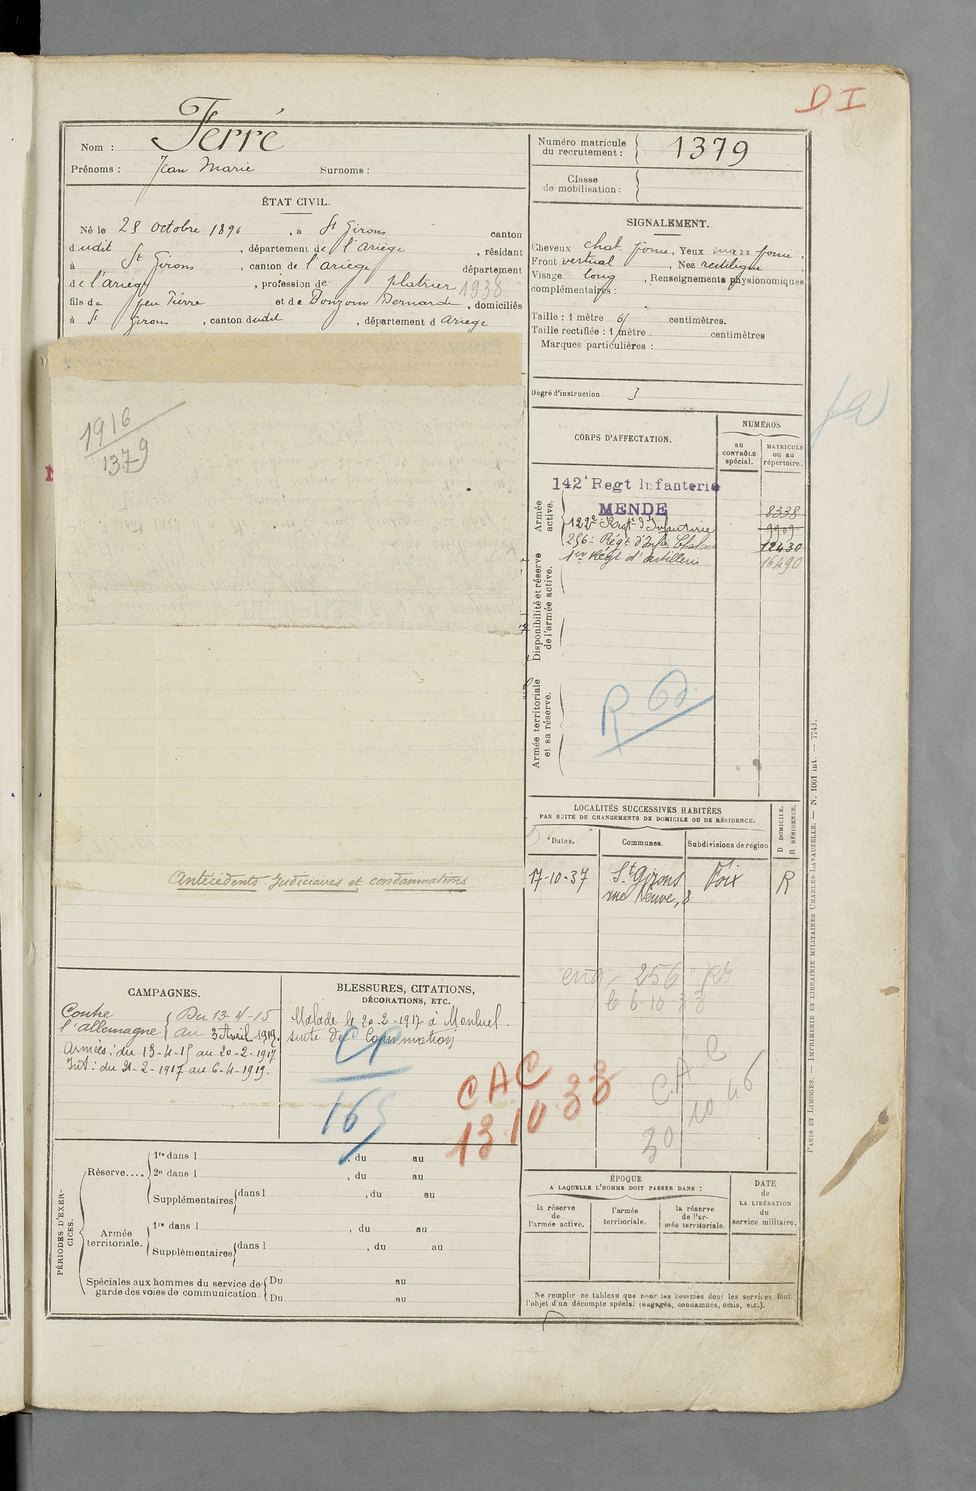 D I
Nom : Ferré
Prénoms : Jean Marie Surnoms :
Numéro matricule du recrutement : 1379
Classe de mobilisation :
ÉTAT CIVIL.
Né le 28 octobre 1896, à St Girons canton
dudit, département de l'Ariège, résidant
à St Girons, canton de l'Ariège département
de l'Ariège, profession de platrier 1938
fils de feu Pierre et de Bernarde, domiciliés
à St Girons, canton dudit, département d Ariège
SIGNALEMENT.
Cheveux chat. fonc, Yeux marr fonc.
Front vertical, Nez rectiligne
Visage long, Renseignements physionomiques
complémentaires :
Taille : 1 mètre 61 centimètres.
Taille rectifiée : 1 mètre centimètres
Marques particulières :
Degré d'instruction 3
1916
1379
CORPS D'AFFECTATION.
NUMÉROS
au CONTRÔLE spécial.
MATRICULE ou au répertoire.
Armée active.
142e Regt Infanterie
MENDE 8338
122e Regt d'Infanterie 9909
256e Régt d'Infie 12430
1er Regt d'artillerie 16490
Disponibilité et réserve de l'armée active.
Armée territoriale et sa réserve.
LOCALITÉS SUCCESSIVES HABITÉES
PAR SUITE DE CHANGEMENTS DE DOMICILE OU DE RÉSIDENCE.
Dates. Communes. Subdivisions de région
D DOMICILE. R RÉSIDENCE.
17-10-37 St Girons Foix R
rue Neuve, 8
Antécédents Judiciaires et condamnations
CAMPAGNES.
Contre l'allemagne { Du 13-4-15
au 3 Avril 1919.
Armées : du 13-4-15 au 20-2-1917
Int : du 21-2-1917 au 6-4-1919.
BLESSURES, CITATIONS,
DÉCORATIONS, ETC.
Malade le 20-2-1917 à Monluel.
CP
165
CAC
13.10.33
256
6-10-33
CAC
30 10 46
PÉRIODES D'EXERCICES.
Réserve.... 1re dans l , du au
2e dans l , du au
Supplémentaires dans l , du au
Armée territoriale. 1re dans l , du au
Supplémentaires dans l , du au
Spéciales aux hommes du service de garde des voies de communication. Du au
Du au
ÉPOQUE
A LAQUELLE L'HOMME DOIT PASSER DANS :
la réserve de l'armée active.
l'armée territoriale.
la réserve de l'armée territoriale.
DATE de LA LIBÉRATION du service militaire.
Ne remplir ce tableau que pour les hommes dont les services font
l'objet d'un décompte spécial (engagés, condamnés, omis, etc.).
PARIS ET LIMOGES. — IMPRIMERIE ET LIBRAIRIE MILITAIRES CHARLES-LAVAUZELLE. — N. 1001 int. — 7743.